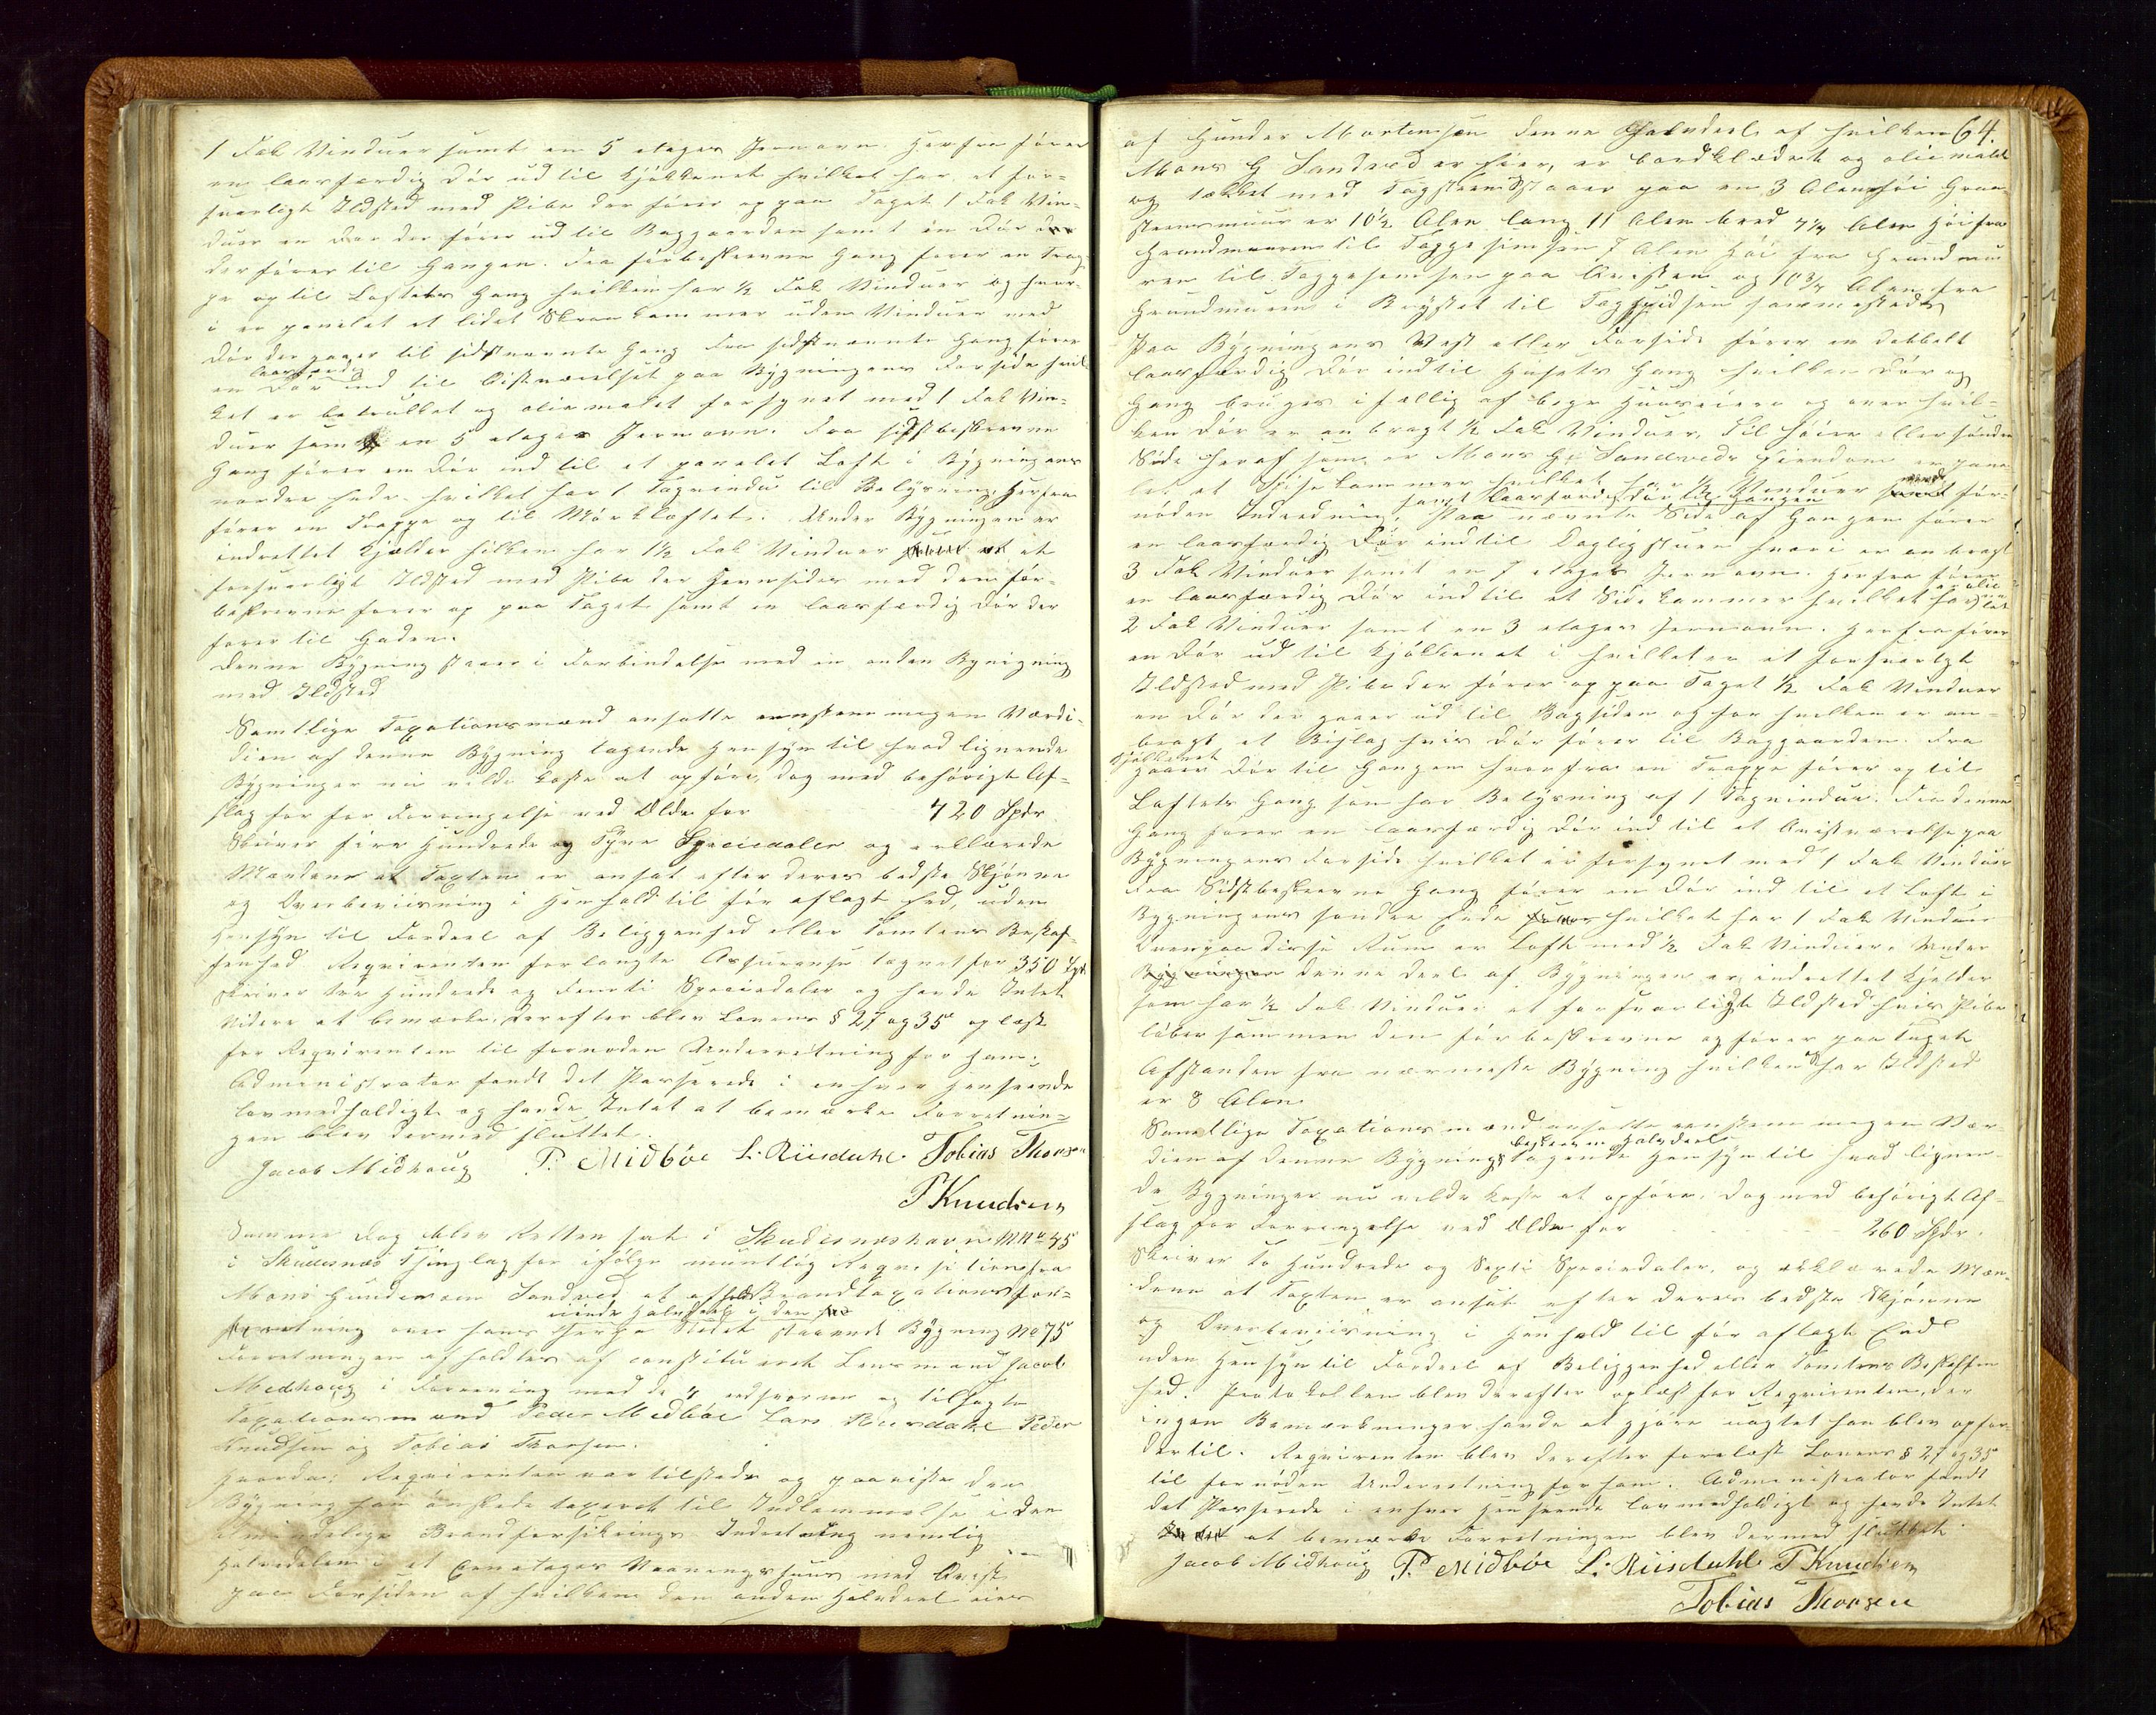 1 Fak Vinduer samt en 5 etages Jernovn. Herfra fører
en laasfærdig Dør ud til Kjøkkenet hvilket har et for-
svarligt Ildsted med Pibe der fører op paa Taget 1 Fak Vin-
duer en Dør der fører ud til Baggaarden samt en Dør
der fører til Gangen. Fra førbeskrevne Gang fører en Trap-
pe op til Loftets Gang hvilken har ½ Fak Vinduer og hvor-
i er panelet et lidet Skram kammer uden Vinduer med
Dør der gaaer til sidstnævnte Gang Fra sidstnævnte Gang fører
laasfærdig
en Dør ind til Qvistværelset paa Bygningens Forside hvil-
ket er betrukket og oliemalet forsynet med 1 Fak Vin-
duer samt en 5 etages Jernovn. Fra sidstbeskrevne
Gang fører en Dør ind til et panelet Loft i Bygningens
nordre Ende hvilket har 1 Tagvindue til Belysning. Herfra
fører en Trappe op til Mørkloftet. Under Bygningen er
indrettet Kjælder hvilken har 1½ Fak Vinduer et
forsvarligt Ildsted med Pibe der sides med den før-
beskrevne fører op paa Taget samt en laasfærdig Dør der
fører til Gaden.
Denne Bygning staaer i Forbindelse med en anden Bygning
med Ildsted
Samtlige Taxationsmænd ansatte eenstemmigen Værdi-
dien af denne Bygning tagende Hensyn til hvad lignende
Bygninger nu vilde koste at opføre, dog med behørigt Af-
slag for Forringelse ved Ælde for 420 Spdr.
Skriver fire Hundrede og Tyve Speciedaler og erklærede
Mændene at Taxten er ansat efter deres bedste Skjønne
og Overbeviisning i Henhold til før aflagt Eed, uden
Hensyn til Fordeel af Beliggenhed eller Tomtens Beskaf-
fenhed Reqvirenten forlangte Assurance tegnet for 350 Spd
skriver tre Hundrede og Femti Speciedaler og havde Intet
videre at bemærke. Derefter blev Lovens § 27 og 35 oplæst
for Reqvirenten til fornøden Underretning for ham.
Administrator fandt det Passerede i enhver Henseende
lovmedholdigt og havde Intet at bemærke Forretnin-
gen blev dermed sluttet.
Jacob Midhoug P. Midbøe L. Riisdahl Tobias Thorsen
P Knudsen
Samme Dag blev Retten sat i Skudesnæshavn MNo 45
i Skudesnæs Thinglag for ifølge mundtlig Reqvisition fra
Mons Gundersen Sandved at afholde Brandtaxationsfor-
eiende Halvdeel i den
retning over hans Stedet staaende Bygning No 75
Forretningen afholdtes af constitueret Lensmand Jacob
Midhoug i Forening med de 4 edsvorne og tilsagte
Taxationsmænd Peder Midbøe Lars Riisdahl Peder
Knudsen og Tobias Thorsen.
Hvorda: Reqvirenten var tilstede og paaviste den
Bygning han ønskede taxeret til Indlemmelse i den
almindelige Brandforsikrings Indretning nemlig
Halvdelen i et Eenetages Vaaningshuus med Qvist
paa Forsiden af hvilken den anden Halvdeel eies
64.
af Gunder Mortensen denne Halvdeel af hvilken
Mons G Sandved er Eier, er bordklædt og oliemalt
og tækket med Tagsteen Staaer paa en 3 Alen høi Graa-
steensmuur er 10½ Alen lang 11 Alen bred 4¼ Alen Høi fra
Grundmuuren til Taggesimsen 7 Alen Høi fra Grundmu
ren til Taggesimsen paa Qvisten og 10¾ Alen fra
Grundmuren i Røstet til Tagspidsen sammesteds
Paa Bygningens Vest eller Forside fører en dobbelt
laasfærdig Dør ind til Husets Gang hvilken Dør og
Gang bruges i fællig af begge Huuseiere og over hvil-
ken Dør er anbragt ½ Fak Vinduer. Til høire eller søndre
Side heraf som er Mons G. Sandveds Eiendom er pane-
let et Spisekammer hvilket har ½ Vinduer med for-
samt laasfærdig Dør til Gangen
nøden Indredning. Paa nævnte Side af Gangen fører
en laasfærdig Dør ind til Dagligstuen hvori er anbragt
3 Fak Vinduer samt en 7 etages Jernovn. Herfra fører
en laasfærdig Dør ind til et Sidekammer hvilket har
2 Fak Vinduer samt en 3 etages Jernovn. Herfra fører
en Dør ud til Kjøkkenet i hvilket er et forsvarligt
Ildsted med Pibe der fører op paa Taget ½ Fak Vinduer
en Dør der gaaer ud til Bagsiden og for hvilken er an-
bragt et Bislag hvis Dør fører til Baggaarden. Fra
Kjøkkenet
gaaer Dør til Gangen hvorfra en Trappe fører op til
Loftets Gang som har Belysning af 1 Tagvindue. Fra denne
Gang fører en laasfærdig Dør ind til et Qvistværelse paa
Bygningens Forside hvilket er forsynet med 1 Fak Vinduer
Fra Sidstbeskrevne Gang fører en Dør ind til et Loft i
Bygningens søndre Ende hvilket har 1 Fak Vinduer
Ovenpaa disse Rum er Loft med ½ Fak Vinduer. Under
Bygningen denne Deel af Bygningen er indrettet Kjelder
som har ½ Fak Vinduer et forsvarligt Ildsted hvis Pibe
løber sammen den førbeskrevne og fører paa Taget
Afstanden fra nærmeste Bygning hvilken har Ildsted
er 8 Alen.
Samtlige Taxationsmænd ansatte eenstemmigen Vær-
beskrevne Halvdeel
dien af denne Bygning tagende Hensyn til hvad lignen-
de Bygninger nu vilde koste at opføre. Dog med behørigt Af-
slag for Forringelse ved Ælde for 260 Spdr.
Skriver to Hundrede og Sexti Speciedaler, og erklærede Mæn-
dene at Taxten er ansat efter deres bedste Skjønne
og Overbeviisning i Henhold til før aflagt Eed
uden Hensyn til Fordeel af Beliggenhed eller Tomtens Beskaffen
hed. Protokollen blev derefter oplæst for Reqvirenten, der
ingen Bemærkninger havde at gjøre uagtet han blev opfor-
dertil. Reqvirenten blev derefter forelæst Lovens § 27 og 35
til fornøden Underretning for ham. Administrator fandt
det Passerede i enhver Henseende lovmedholdigt og havde Intet
at bemærke Forretningen blev dermed sluttet.
Jacob Midhoug P. Midbøe L. Riisdahl P Knudsen
Tobias Thorsen